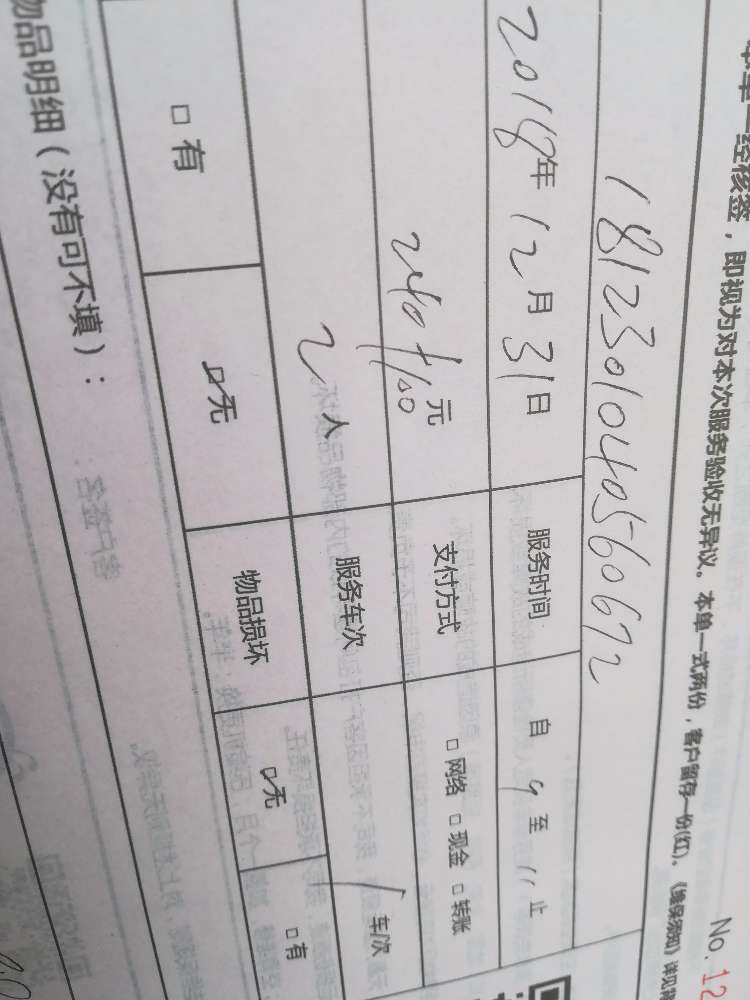 本单一经核签，即视为对本次服务验收无异议。本单一式两份，客户留存一份(红)。《维保须知》详见
No. 12
1812301040560672
2018年12月31日 服务时间 自 9 至 11 止
元 支付方式 □ 网络 □ 现金 □ 转账
2 人 服务车次 1 车/次
□ 有 ☑ 无 物品损坏 ☑ 无 □ 有
物品明细（没有可不填）：